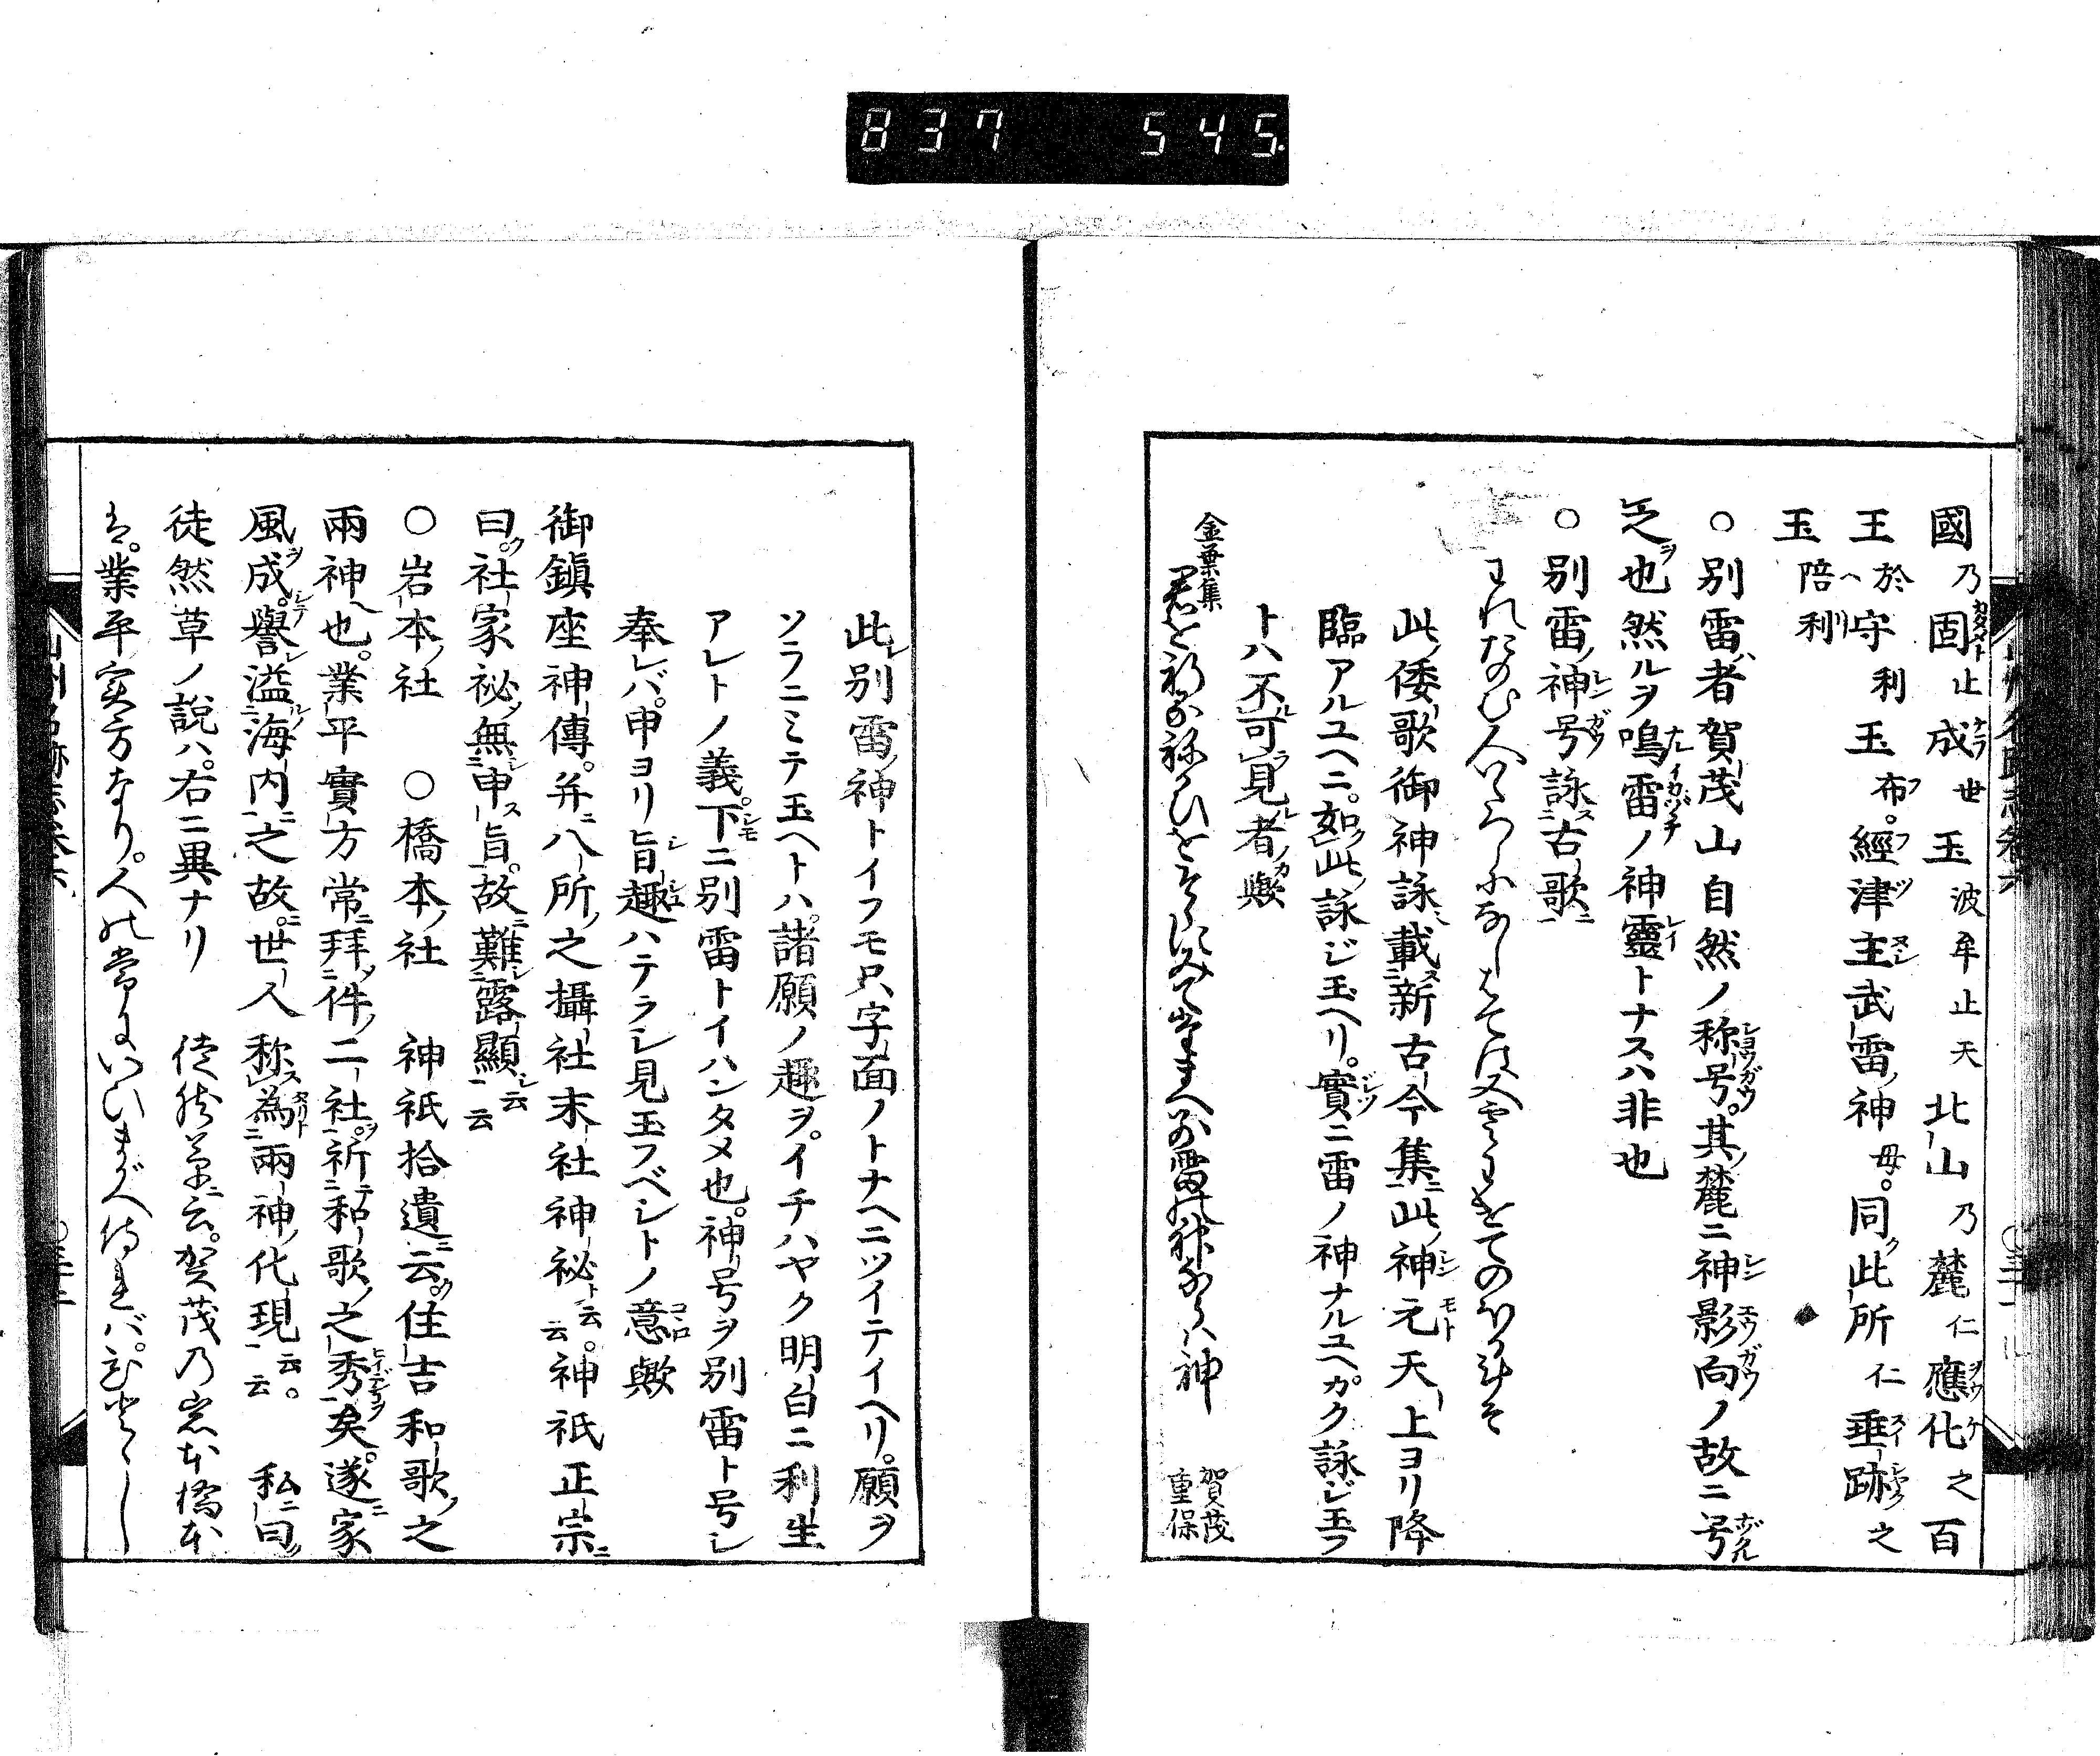 837 545.
國乃固止成世玉波牟止天北山乃麓仁應化之百
王於守利玉布。經津主武雷神毋。同此所仁垂跡之
玉陪利
○別雷者賀茂山自然ノ称号。其麓ニ神影向ノ故ニ号
之也然ルヲ鳴雷ノ神靈トナスハ非也
○別雷神号詠古歌
われたのむ人いたつらになしはては又雲わけてのほるはかりそ
此倭歌御神詠載新古今集此神元天上ヨリ降
臨アルユヘニ。如此詠ジ玉ヘリ。實ニ雷ノ神ナルユヘカク詠ジ玉フ
トハ不可見者歟
金葉集
君を祈る願ひをそらにみて玉へ別雷の神ならハ神
賀茂重保
此別雷神トイフモ只字面ノトナヘニツイテイヘリ。願ヲ
ソラニミテ玉ヘトハ。諸願ノ趣ヲ。イチハヤク明白ニ利生
アレトノ義。下ニ別雷トイハンタメ也。神号ヲ別雷ト号シ
奉レバ。申ヨリ旨趣ハテラシ見玉フベシトノ意歟
御鎮座神傳。并八所之攝社末社神祕云云。神祇正宗
曰。社家祕無申旨。故難露顯云云
○岩本社　○橋本社　神祇拾遺云。住吉和歌之
兩神也。業平實方常拜件二社。祈和歌之秀矣。遂家
風成。譽溢海内之故。世人称為兩神化現云云。　私曰
徒然草ノ説ハ。右ニ異ナリ　徒然草ニ云。賀茂乃岩本橋本
は。業平実方なり。人の常にいひまがへ侍れバ。ひとゝし